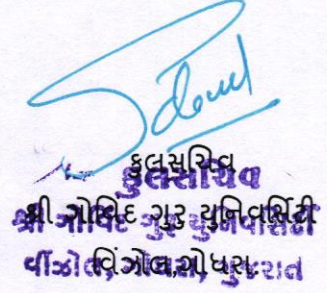 કુલસચિવ
શ્રી ગોવિંદ ગુરુ યુનિવર્સિટી
વિંઝોલ,ગોધરા
કુલસચિવ
શ્રી ગોવિંદ ગુરુ યુનિવર્સિટી
ગુજરાત